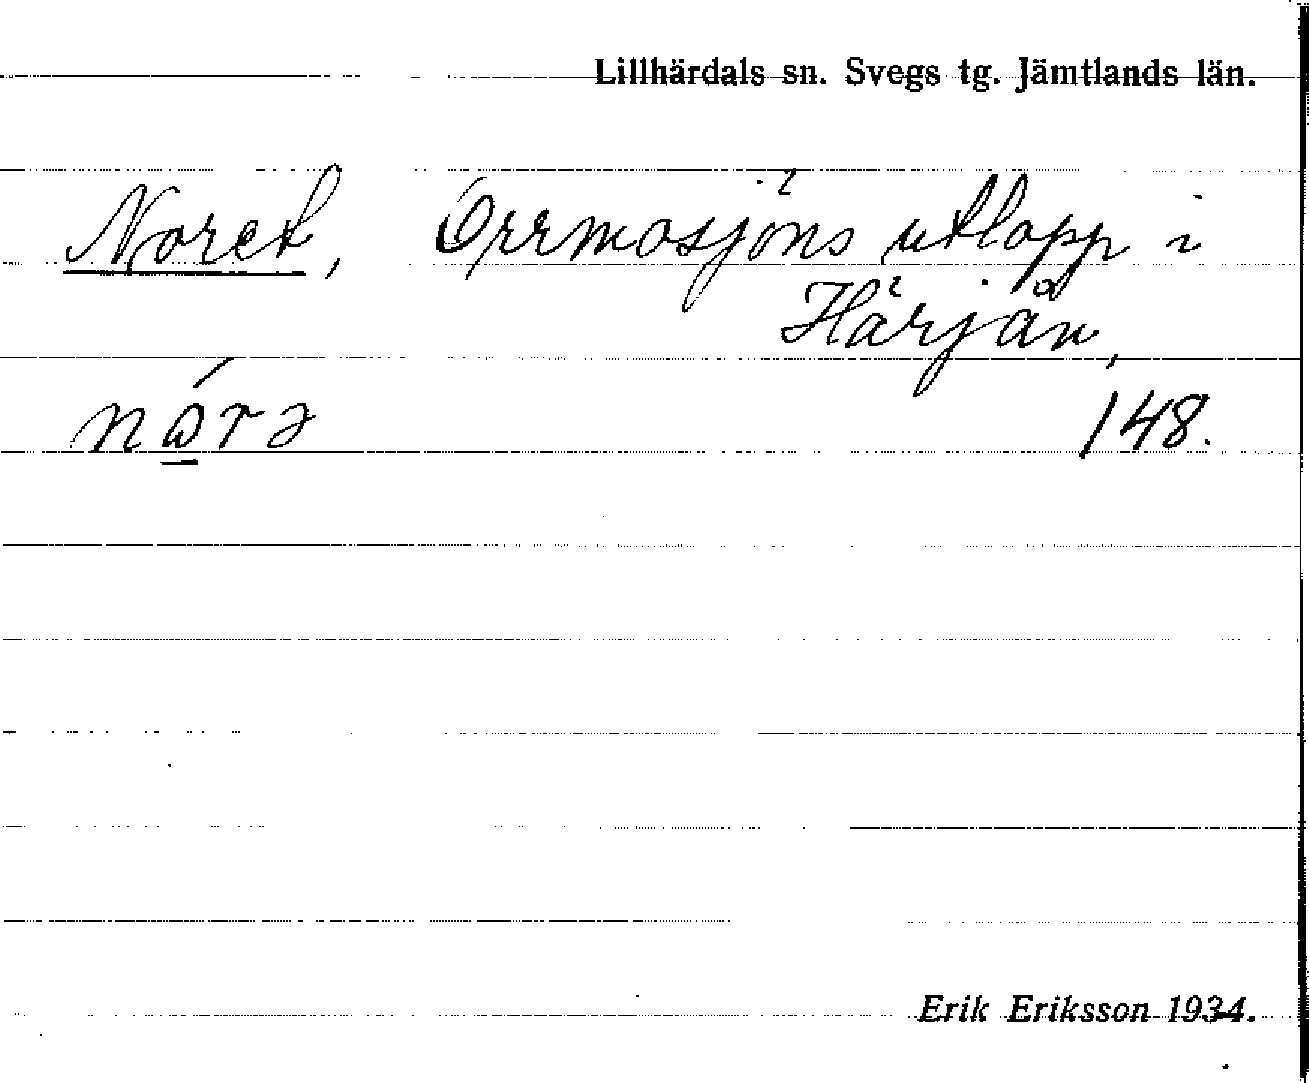 Lillhärdals sn. Svegs tg. Jämtlands län.
Noret, Orrmosjöns utlopp i
Härjån,
nɷ̲́rə 148.
Erik Eriksson 1934.